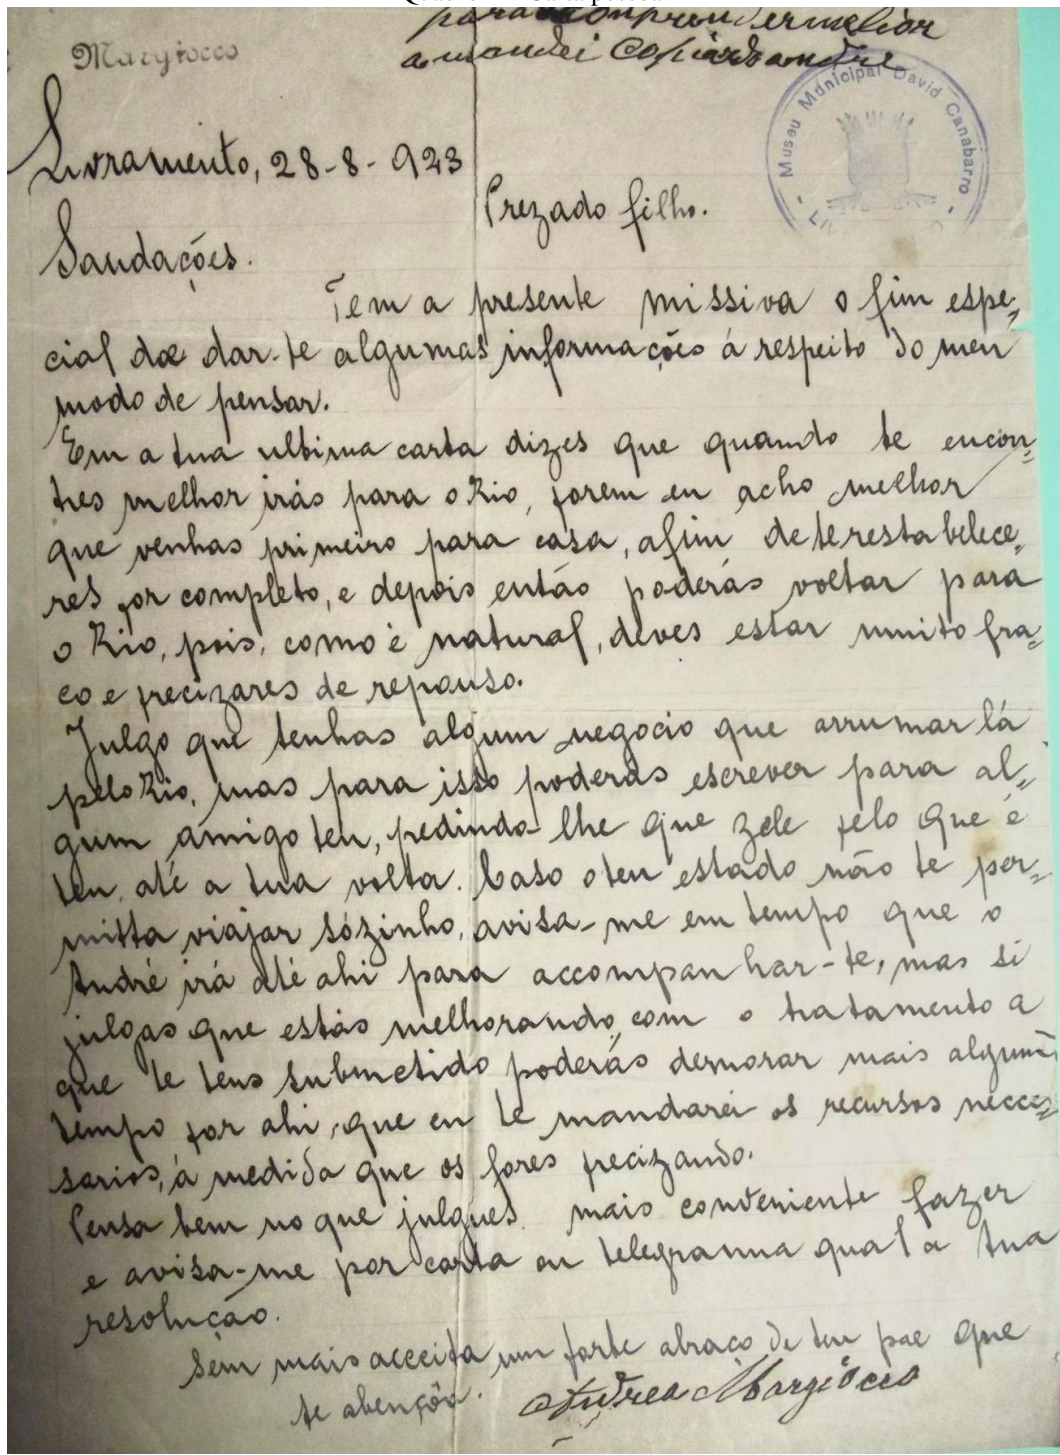 para comprender melior
a mandei Copiar do andre
Margiocco
Museu Municipal David Canabarro
Livramento, 28-8-923
Prezado filho.
Saudações.
Tem a presente missiva o fim espe,,
cial de dar-te algumas informações á respeito do meu
modo de pensar.
Em a tua ultima carta dizes que quando te encon,,
tres melhor irás para o Rio, porem eu acho melhor
que venhas primeiro para casa, afim de te restabelece,,
res por completo, e depois então poderás voltar para
o Rio, pois, como é natural, deves estar muito fra,,
co e precizares de repouso.
Julgo que tenhas algum negocio que arrumar lá
pelo Rio, mas para isso poderás escrever para al,,
gum amigo teu, pedindo-lhe que zele pelo que é
teu, até a tua volta. Caso o teu estado não te per,,
mitta viajar sózinho, avisa-me em tempo que o
André irá até ahi para accompanhar-te, mas si
julgas que estás melhorando, com o tratamento a
que te tens submetido poderás demorar mais algum
tempo por ahi, que eu te mandarei os recursos necces,,
sarios, á medida que os fores precizando.
Pensa bem no que julgues mais conveniente fazer
e avisa-me por carta ou telegramma qual a tua
resolução.
Sem mais acceita um forte abraço de teu pae que
te abençôa.
Andrea Margiocco